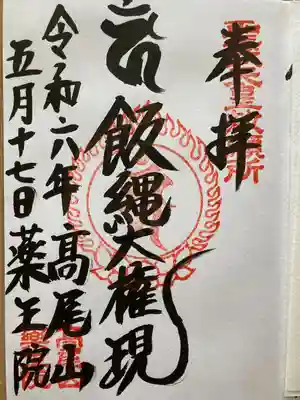 奉拝
飯縄大権現
令和六年 高尾山
五月十七日 薬王院